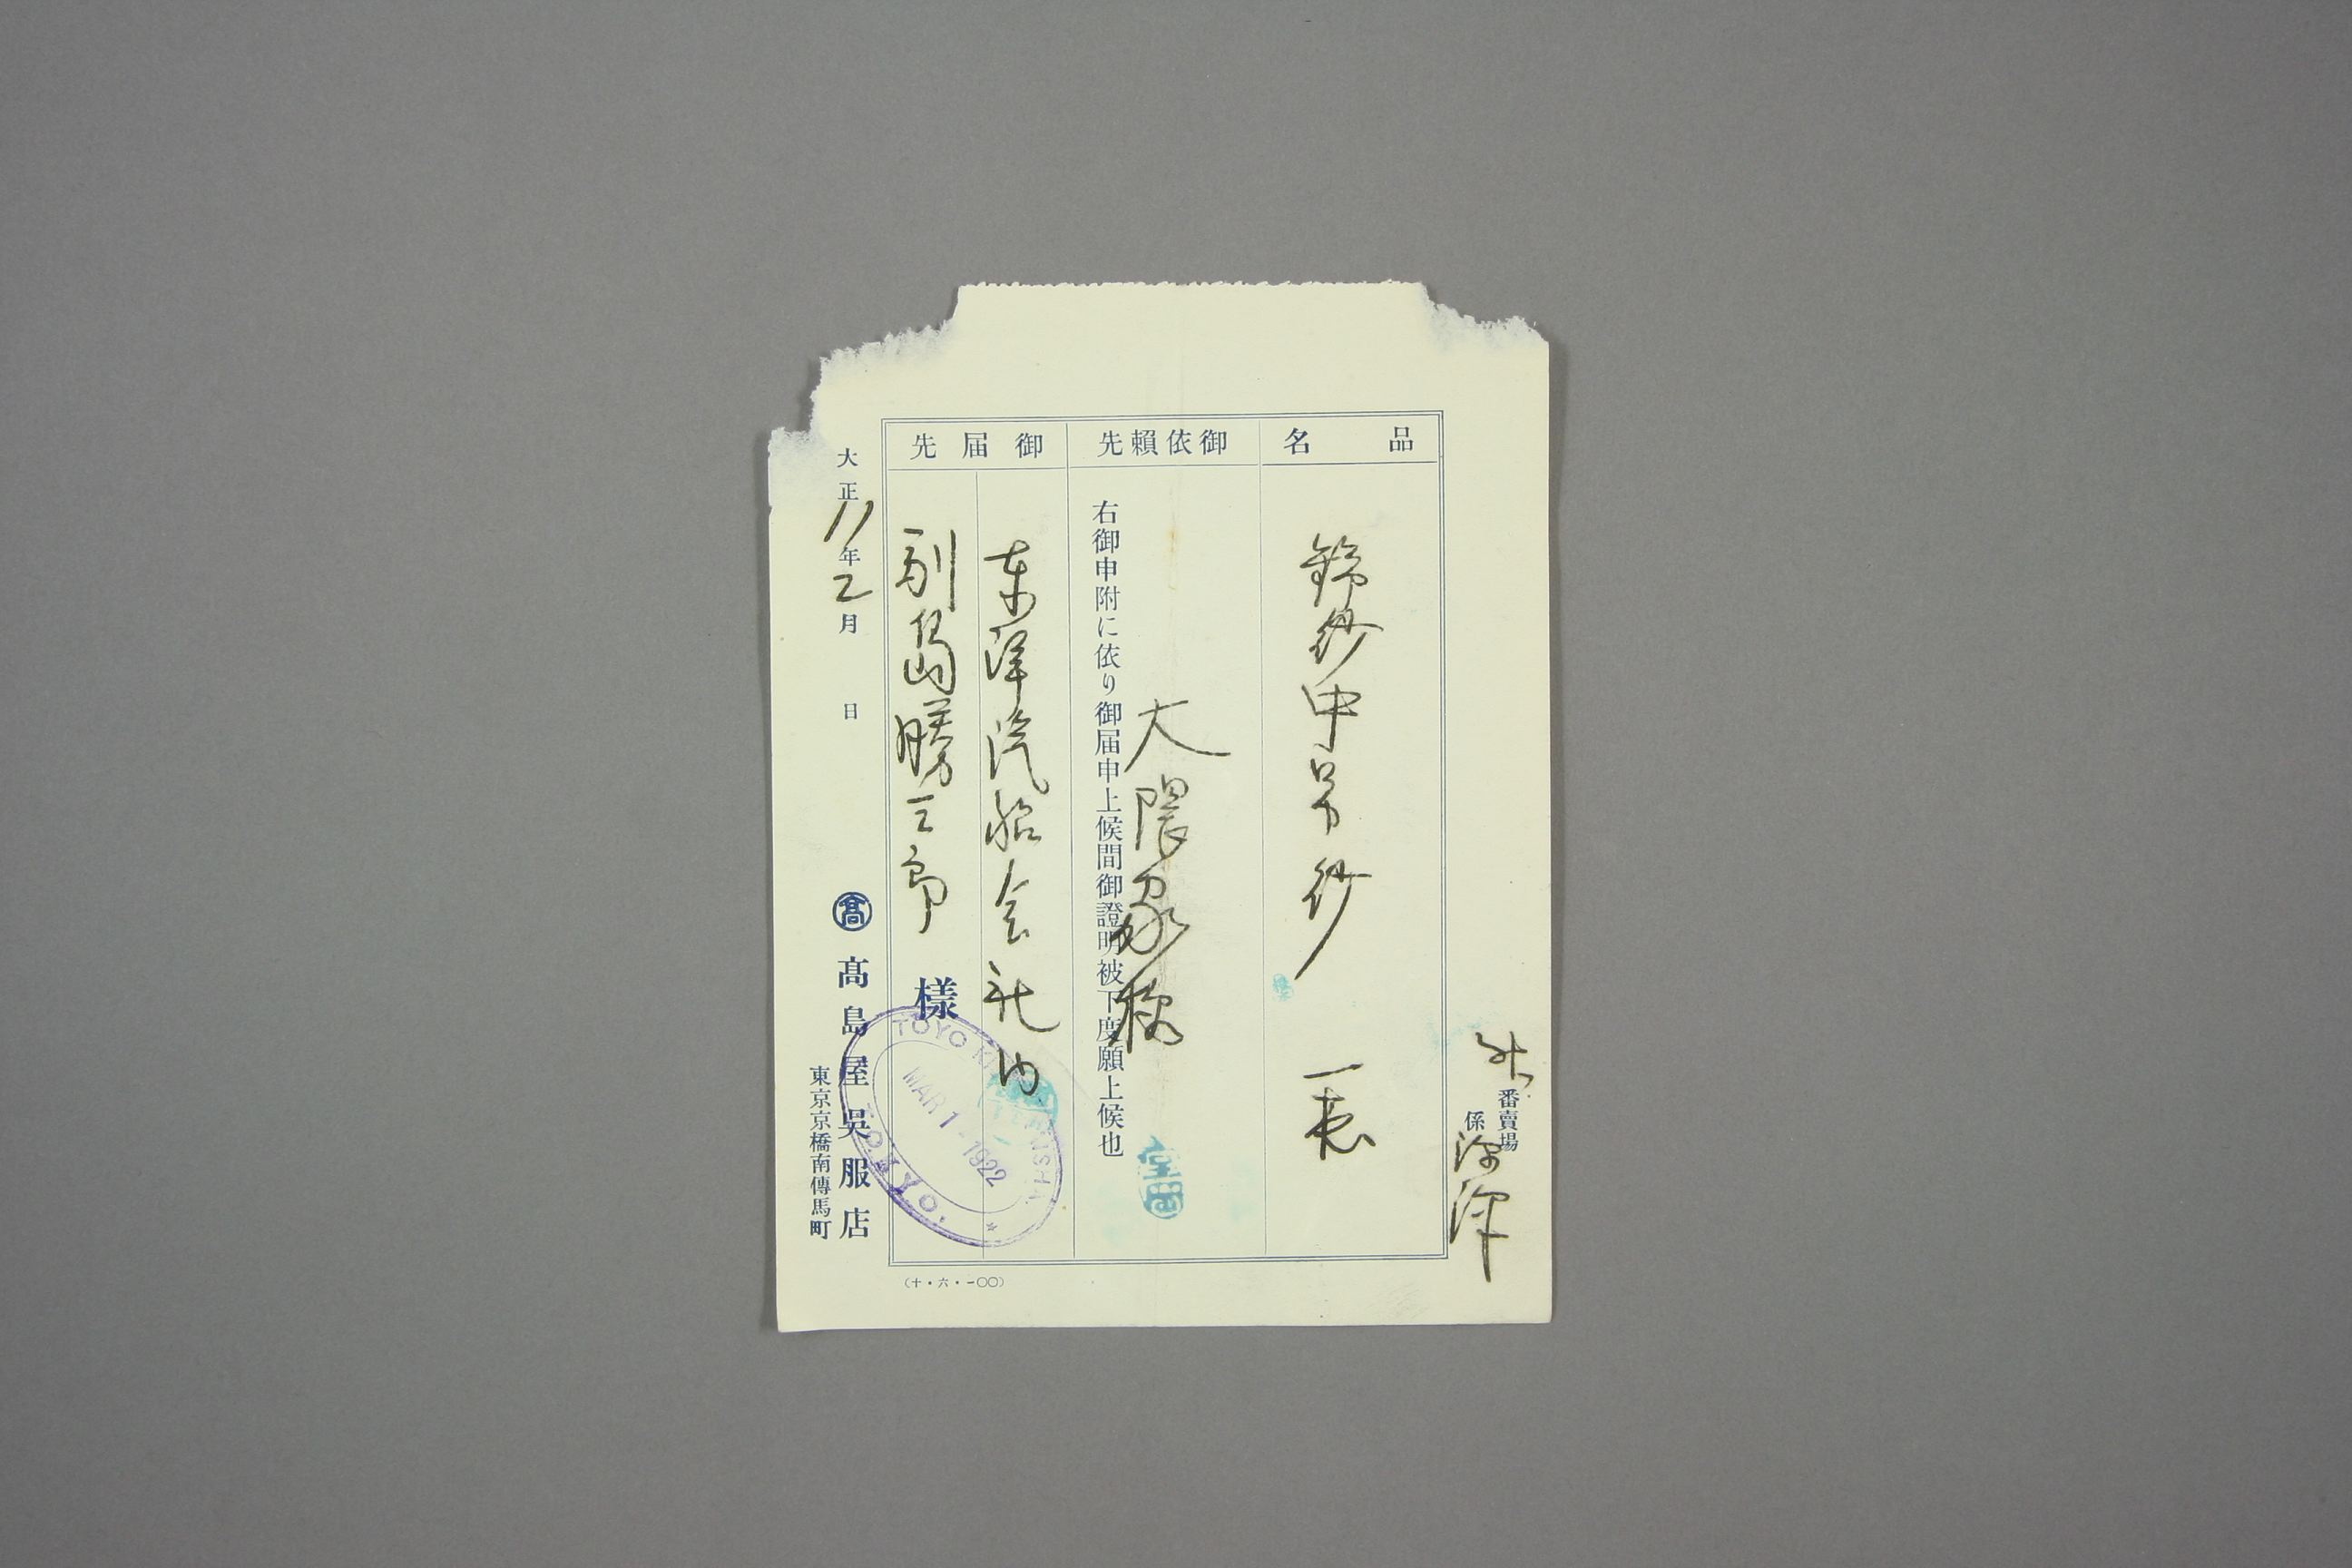 品名
錦紗中号紗 一表
御依頼先
大隈家様
右御申附に依り御届申上候間御證明被下度願上候也
御届先
東洋汽船会社内
別島勝三郎 樣
大正11年2月 日
髙 髙島屋呉服店
東京京橋南傳馬町
番賣場
係
(十・六・一〇〇)
TOYO KISEN KAISHA
MAR 1 - 1922
TOKYO.